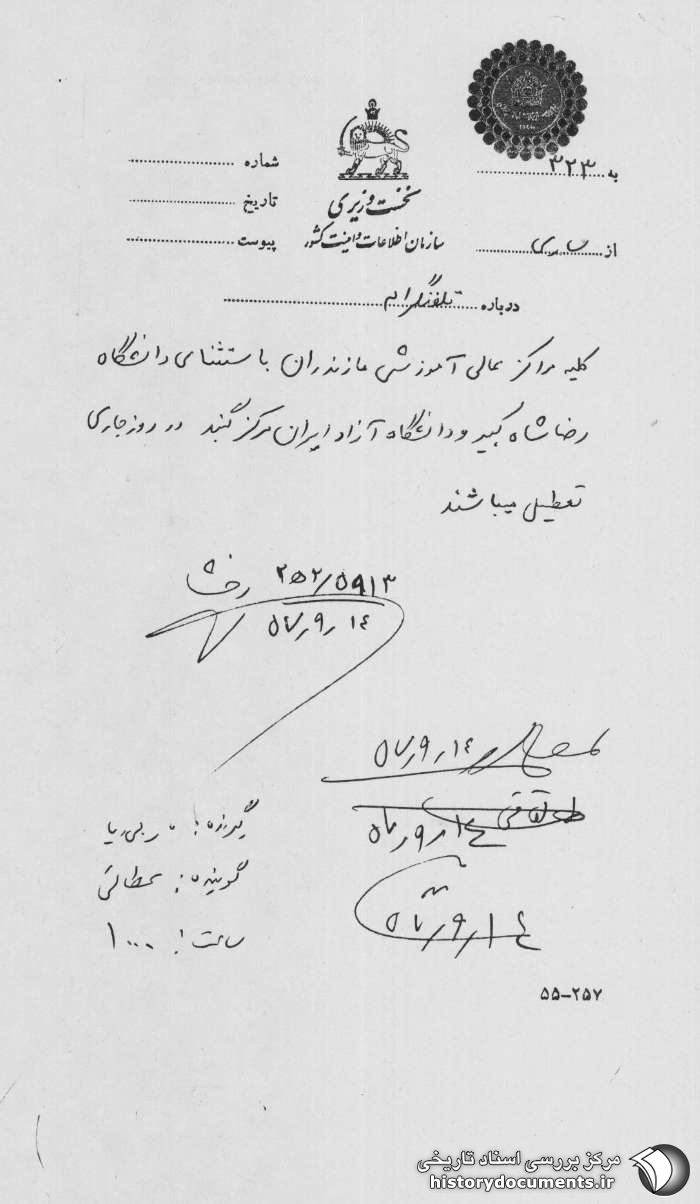 به ۳۲۳
شماره
نخست وزیری
تاریخ
سازمان اطلاعات و امنیت کشور
از ساری
پیوست
درباره تلفنگرام
کلیه مراکز عالی آموزشی مازندران باستثنای دانشگاه
رضا شاه کبیر و دانشگاه آزاد ایران مرکز گنبد در روز جاری
تعطیل میباشند
۲۵۲/۵۹۱۳
۵۷٫۹٫۱۴
۵۷٫۹٫۱۴
۵۷٫۹٫۱۴
گیرنده:
گوینده:
۵۷٫۹٫۱۴
ساعت: ۱۰۰۰
۵۵-۲۵۷
مرکز بررسی اسناد تاریخی
historydocuments.ir